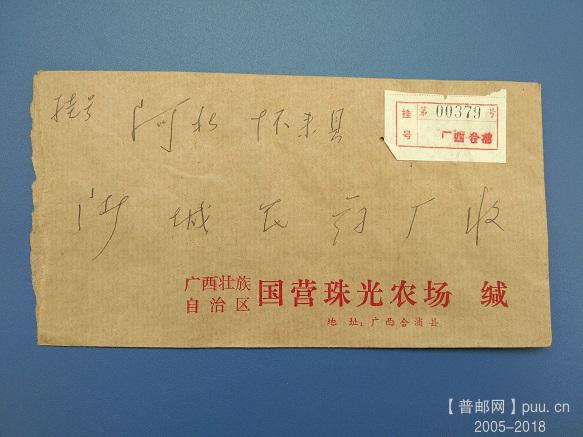 挂号
第 00379 号
挂号 广西合浦
河北 怀来县
沙城农药厂收
广西壮族自治区 国营珠光农场 缄
地 址：广西合浦县
【普邮网】puu.cn
2005-2018